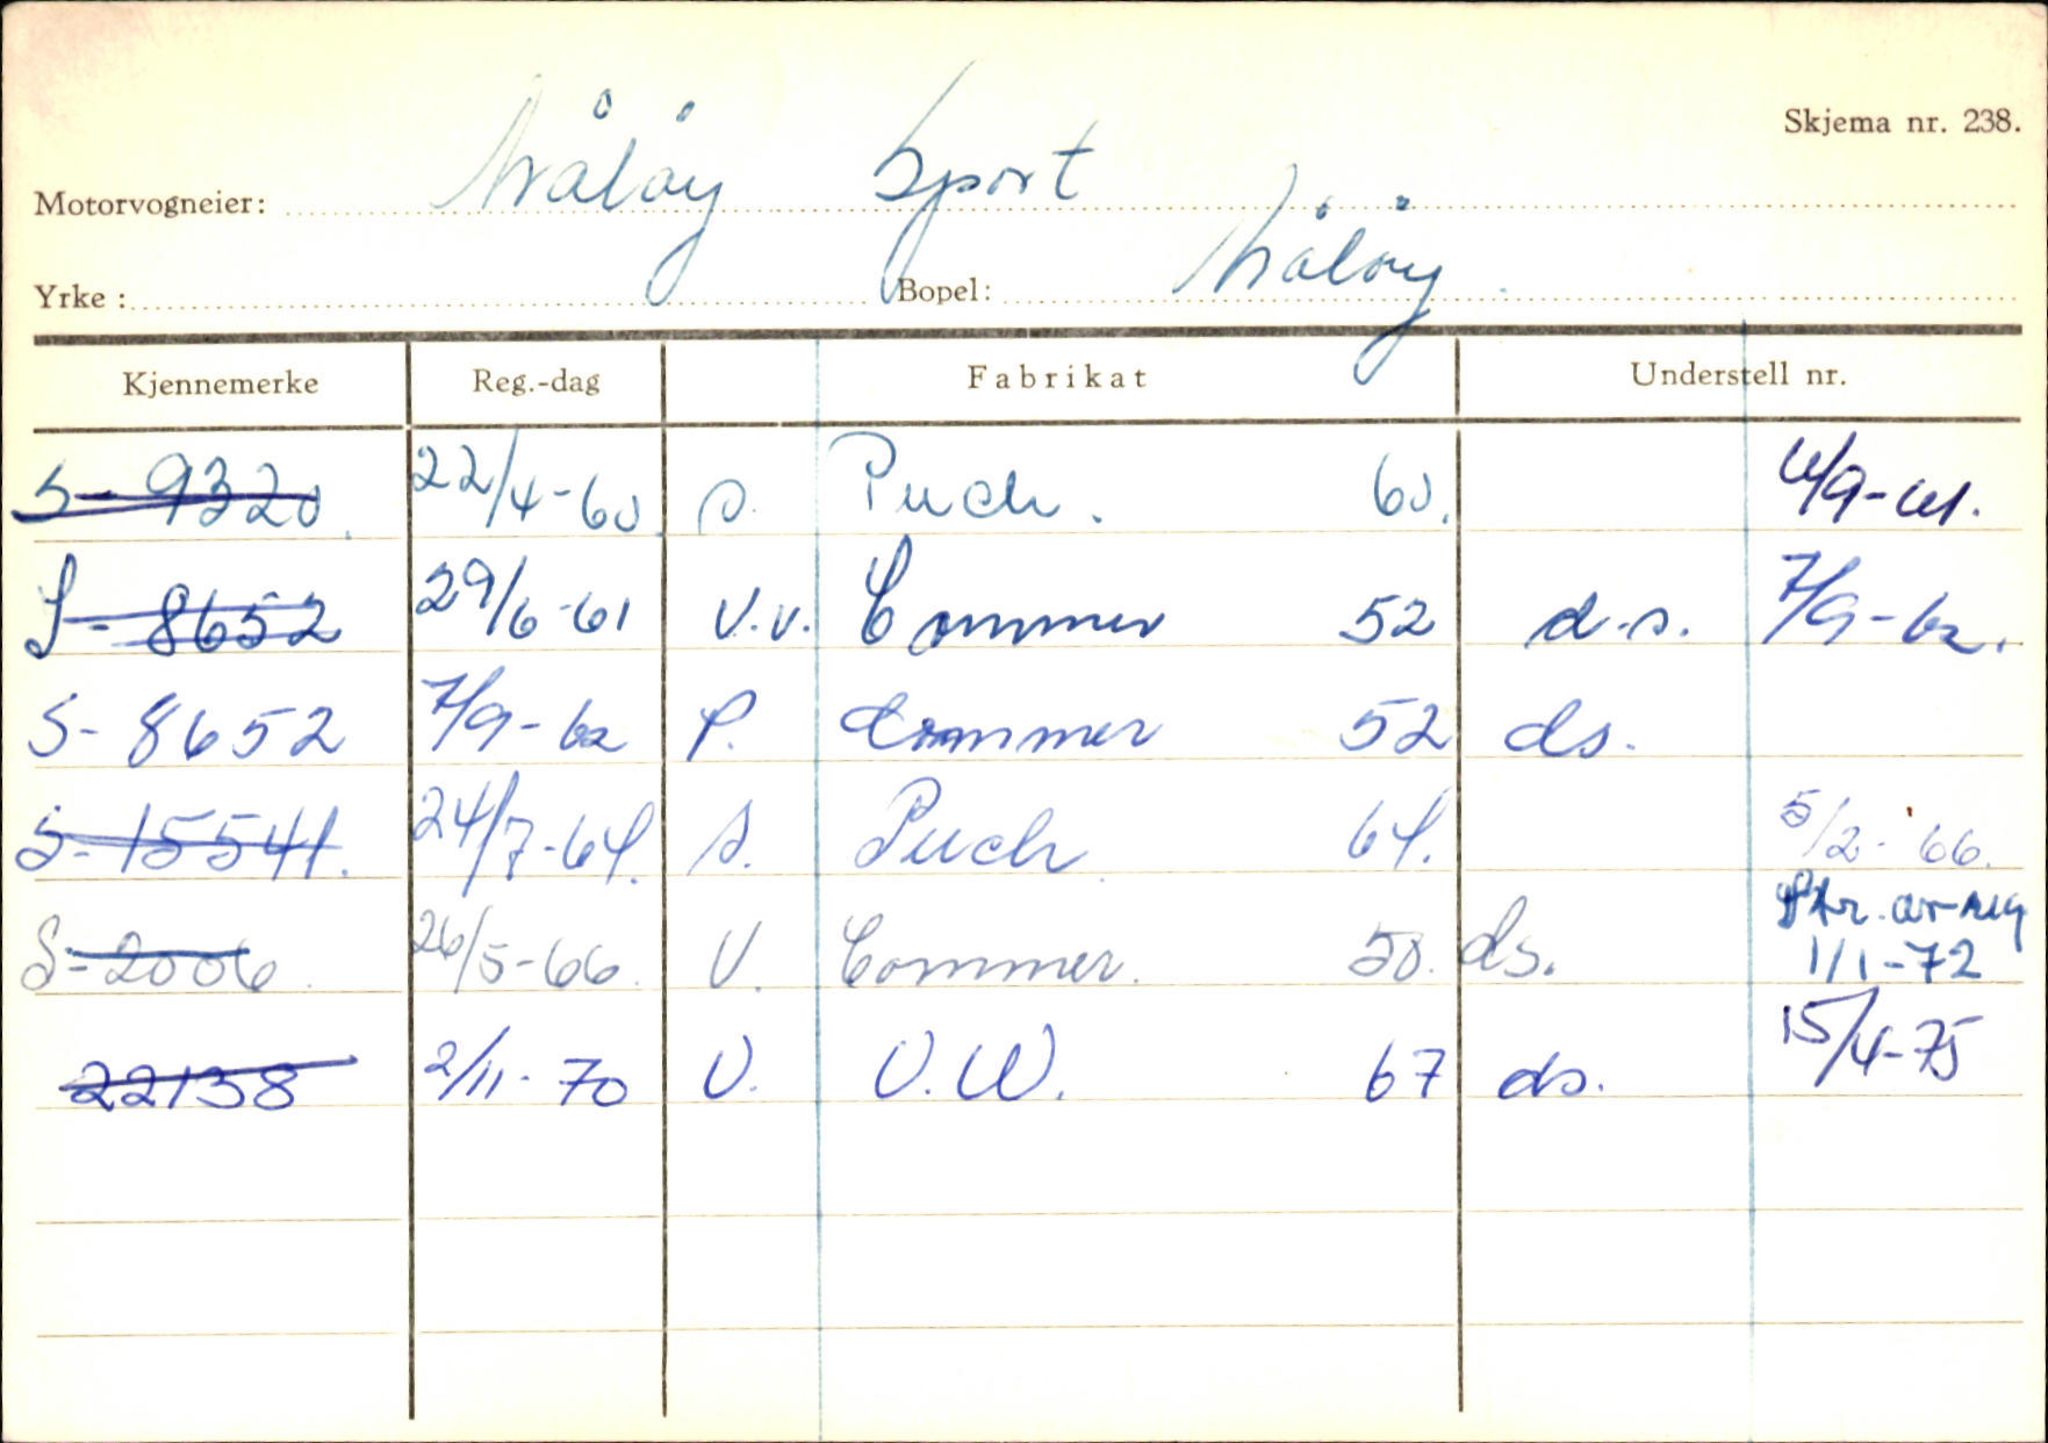 Skjema nr. 238.
Motorvogneier: Måløy Sport
Yrke : Bopel: Måløy
Kjennemerke Reg.-dag Fabrikat Understell nr.
S- 9320. 22/4-60. s. Puch. 60.
S- 8652 29/6-61 V.v. Commer 52 d.s. 7/9-62.
S- 8652 7/9-62 P. Commer 52 ds.
S- 15541. 24/7-64. s. Puch. 64. 5/2-66.
S- 2006. 26/5-66. V. Commer. 50. ds. Str. av reg 1/1-72
22138 2/11-70 V. V.W. 67 ds. 15/4-75